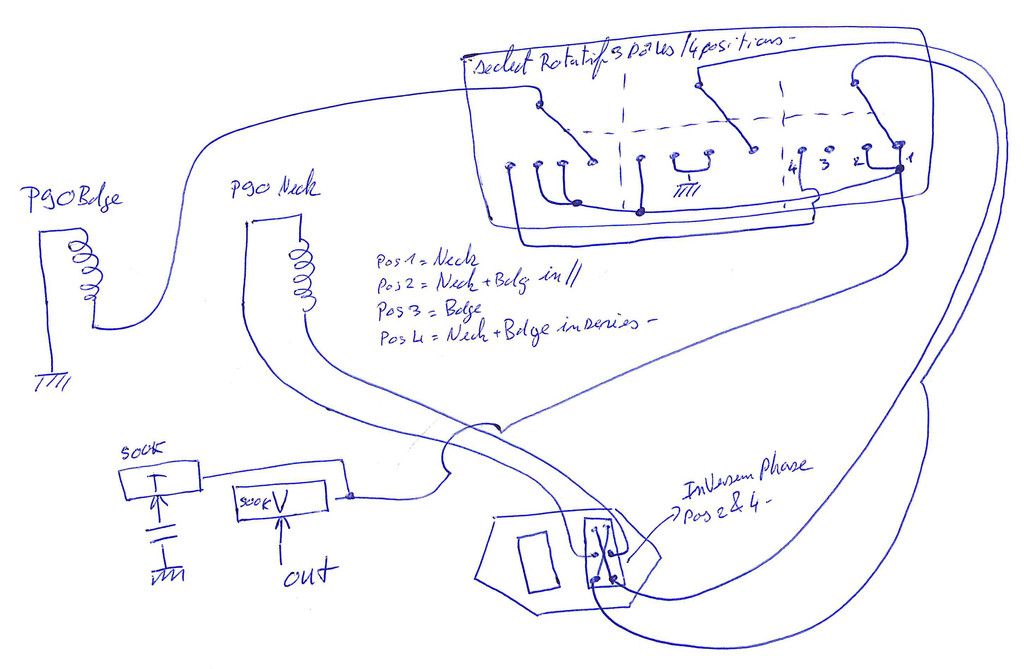 select Rotatif 3 pôles /4 positions -
P90 Bdge
P90 Neck
4 3 2 1
Pos 1 = Neck
Pos 2 = Neck + Bdg in //
Pos 3 = Bdge
Pos 4 = Neck + Bdge in series -
500K
T
500K V
out
Pos 2 & 4 -